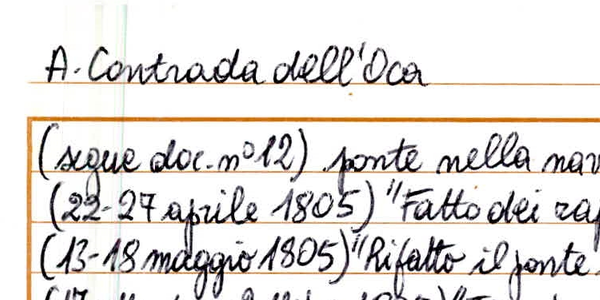 A. Contrada dell'Oca
(segue doc. n° 12) ponte nella nav
(22-27 aprile 1805) "Fatto dei rap
(13-18 maggio 1805) "Rifatto il ponte